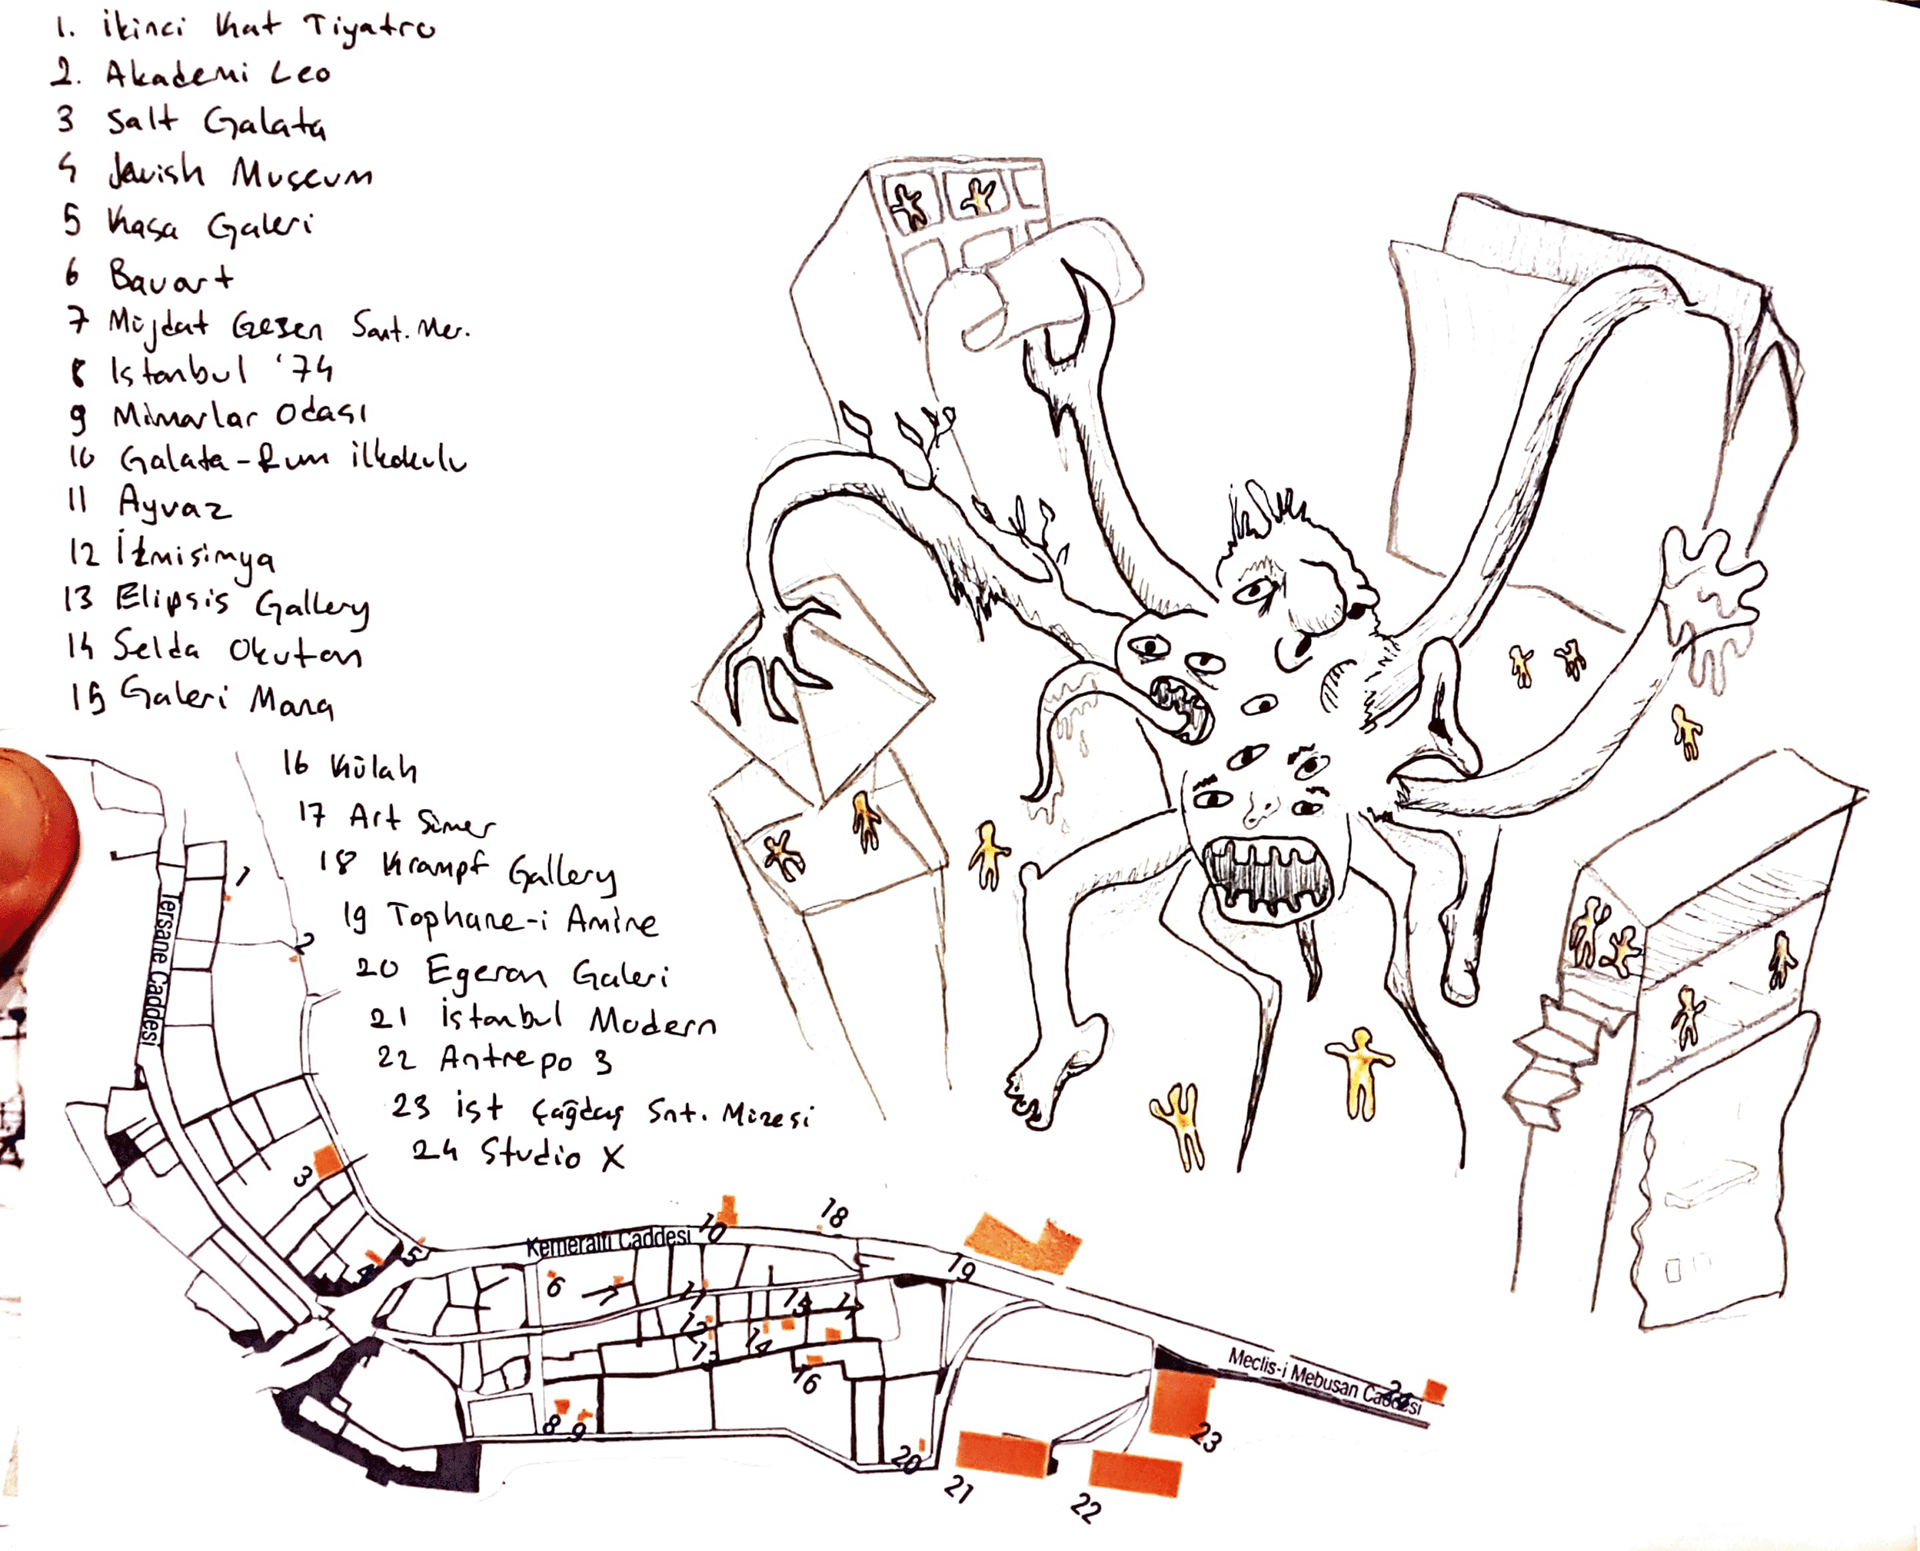 1. İkinci Kat Tiyatro
2. Akademi Leo
3 Salt Galata
4 Jewish Museum
5 Kasa Galeri
6 Bavart
7 Müjdat Gezen Sant. Mer.
8 Istanbul '74
9 Mimarlar Odası
10 Galata-Rum ilkokulu
11 Ayvaz
12 İtmisimya
13 Elipsis Gallery
14 Selda Okutan
15 Galeri Mana
16 Külah
17 Art Sümer
18 Krampf Gallery
19 Tophane-i Amire
20 Egeran Galeri
21 İstanbul Modern
22 Antrepo 3
23 ist Çağdaş Snt. Müzesi
24 Studio X
1
2
Tersane Caddesi
3
4
5
Kemeraltı Caddesi
10
18
19
6
7
11
12
13
14
16
8
9
20
21
22
23
Meclis-i Mebusan Caddesi